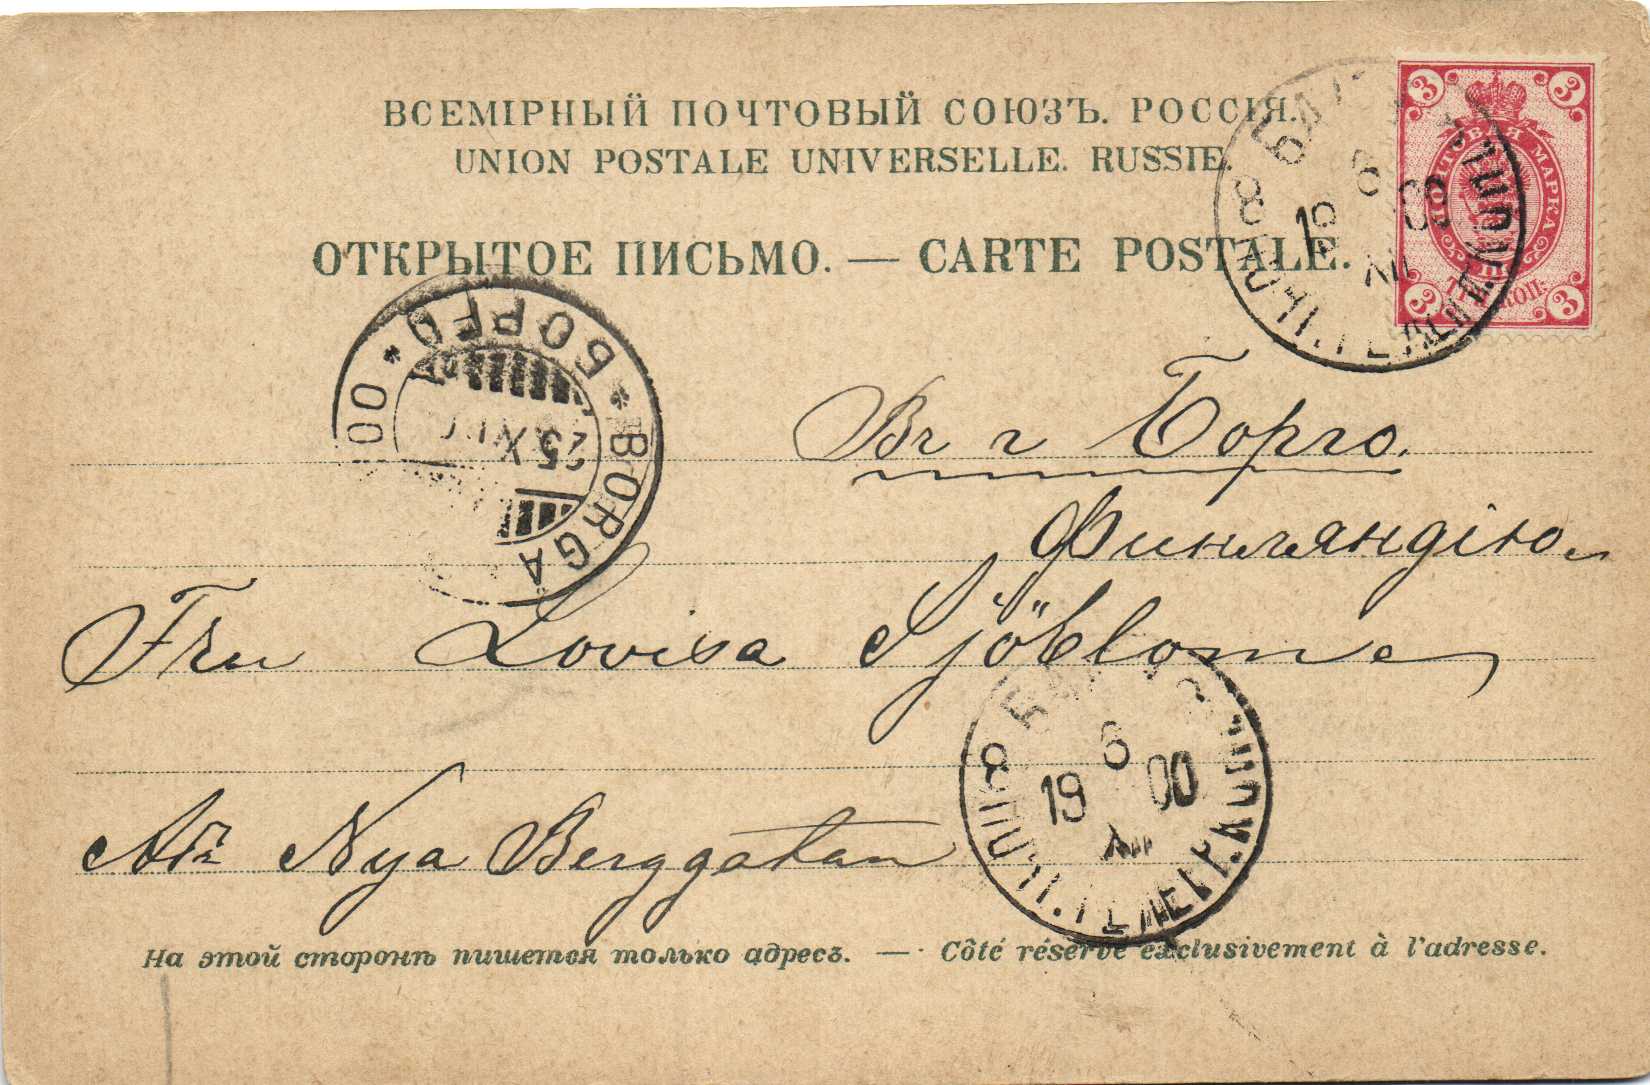 ВСЕМІРНЫЙ ПОЧТОВЫЙ СОЮЗЪ. РОССІЯ.
UNION POSTALE UNIVERSELLE. RUSSIE.
ОТКРЫТОЕ ПИСЬМО. — CARTE POSTALE.
3 3
МАРКА
3 3
8 6 19 00
БОРГО * BORGÅ * 00
25 X
Въ г Борго.
Финляндію
Fru Lovisa Sjöblom
Nya Berggatan
8 6 19 00
ТЕЛЕГР.
На этой сторонѣ пишется только адресъ. — Côté réservé exclusivement à l'adresse.